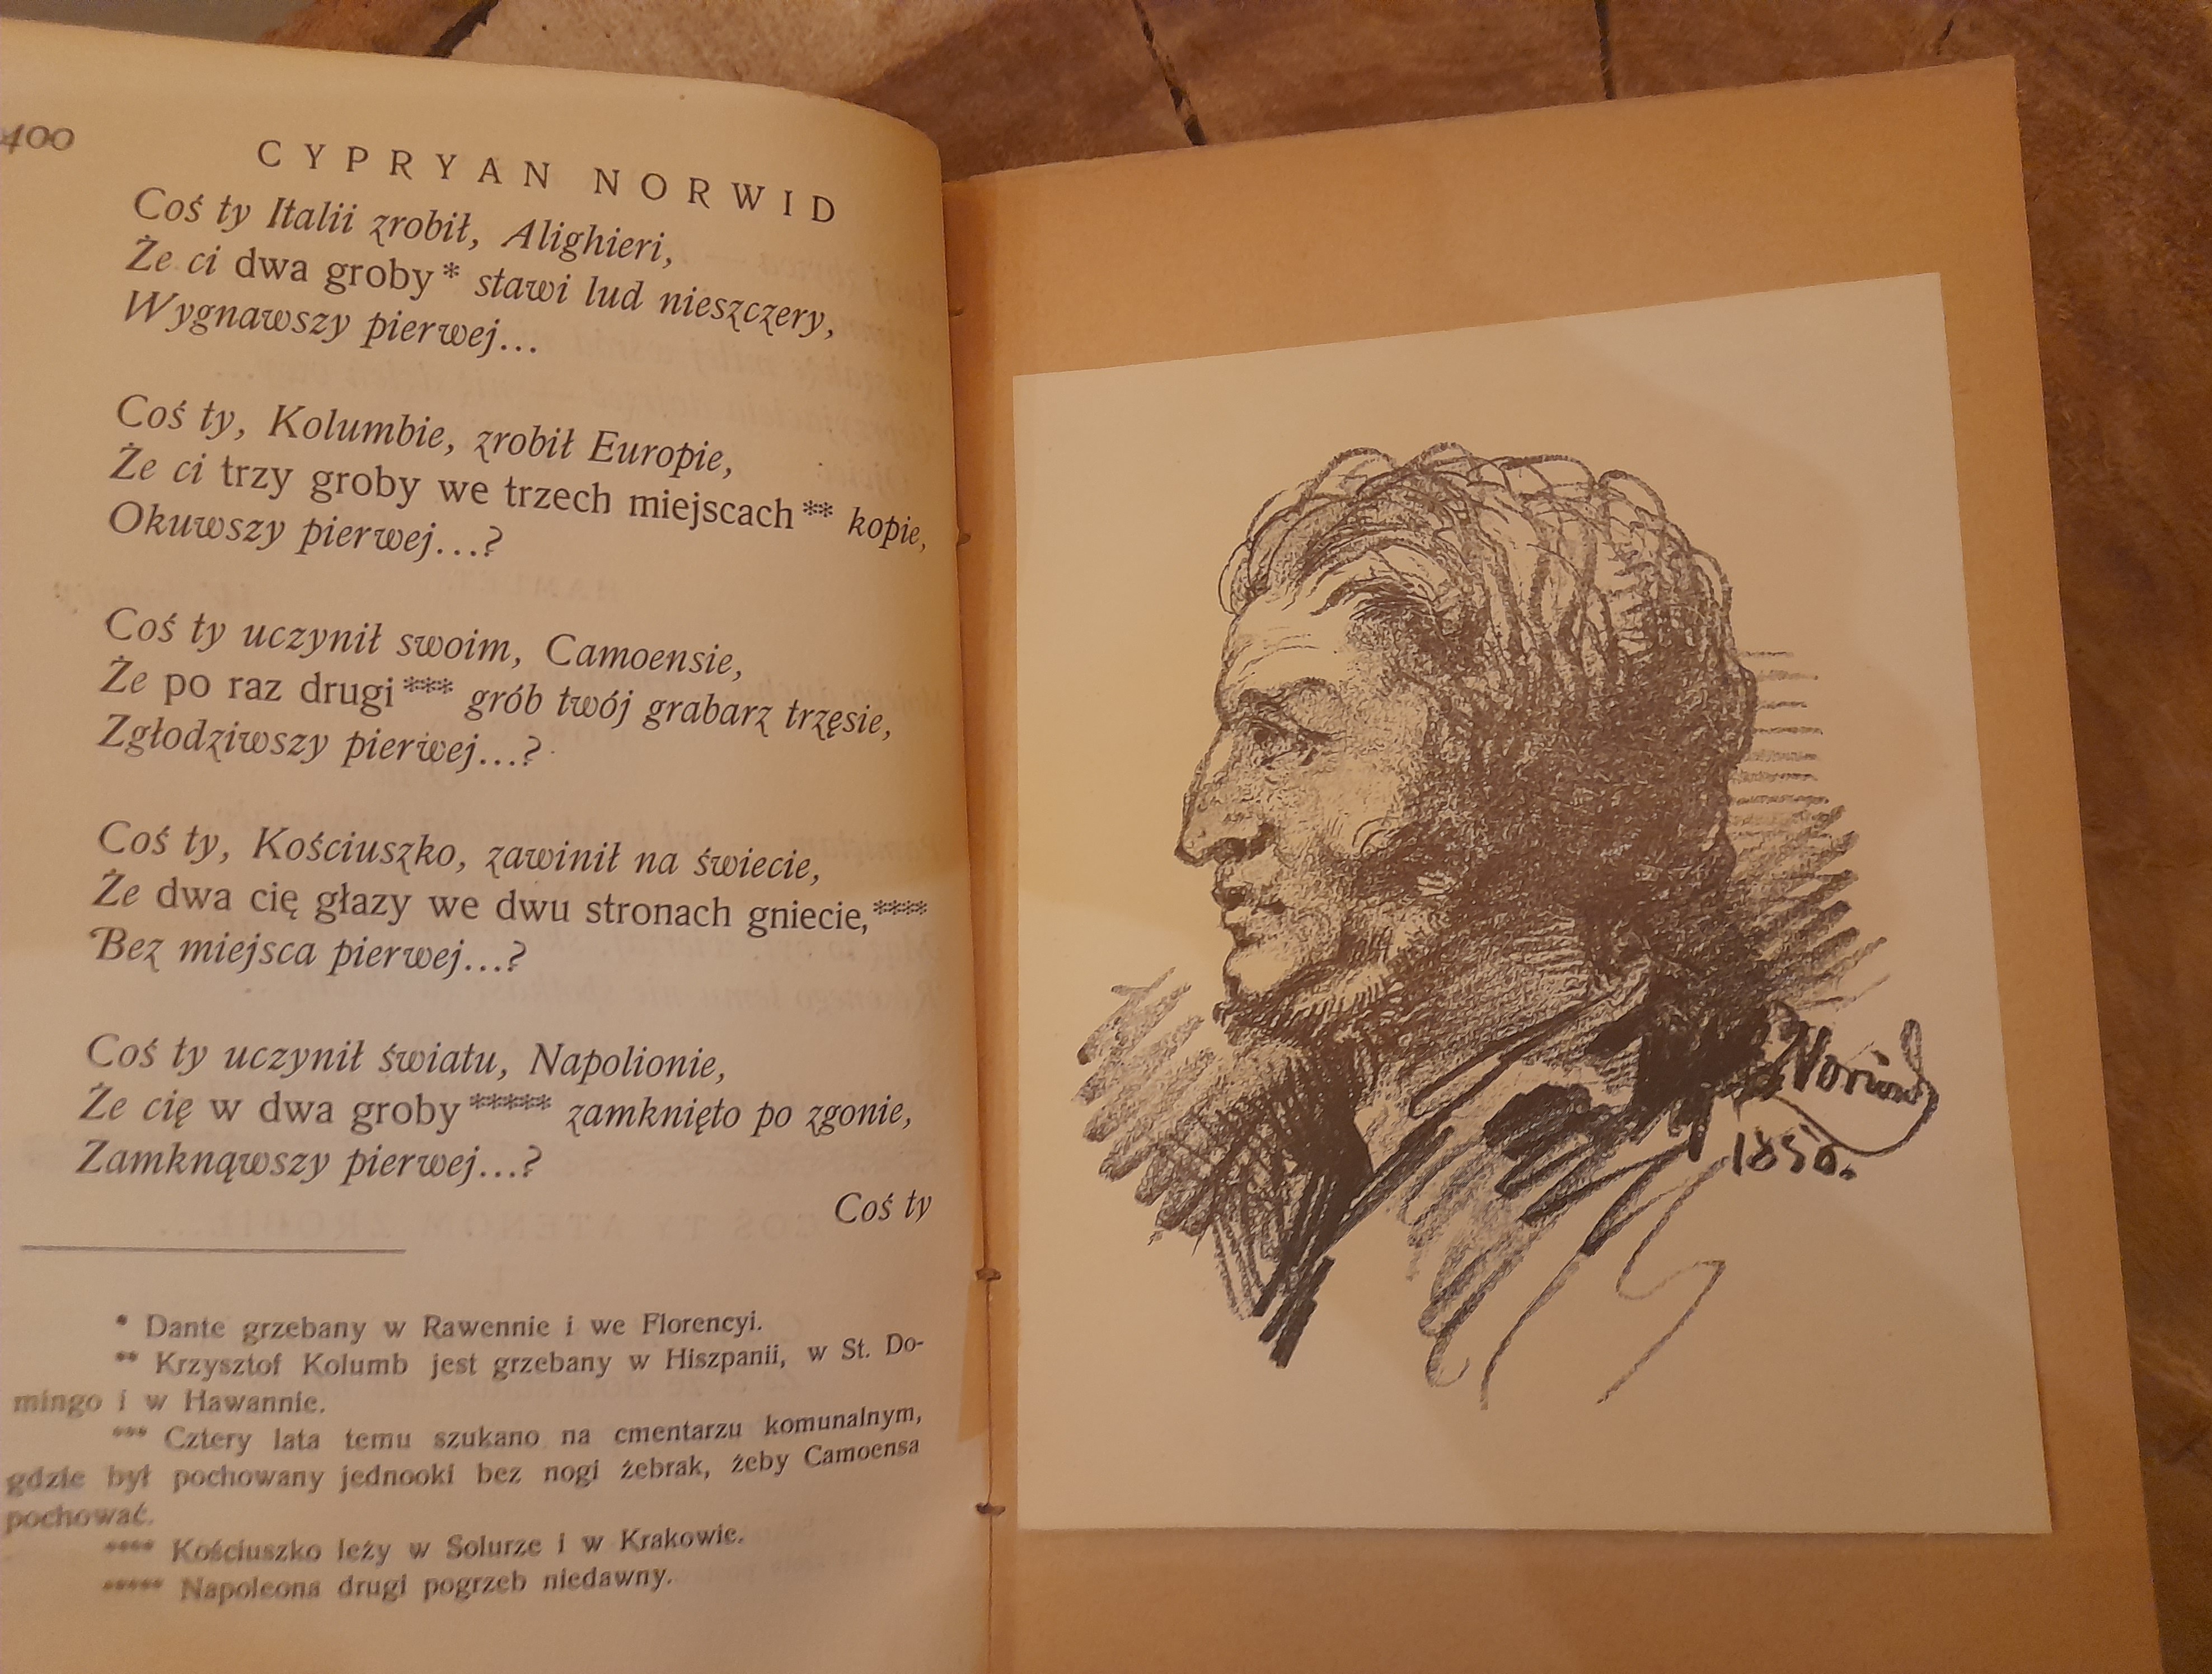 400
CYPRYAN NORWID
Coś ty Italii zrobił, Alighieri,
Że ci dwa groby* stawi lud nieszczery,
Wygnawszy pierwej...
Coś ty, Kolumbie, zrobił Europie,
Że ci trzy groby we trzech miejscach** kopie,
Okuwszy pierwej...?
Coś ty uczynił swoim, Camoensie,
Że po raz drugi*** grób twój grabarz trzęsie,
Zgłodziwszy pierwej...?
Coś ty, Kościuszko, zawinił na świecie,
Że dwa cię głazy we dwu stronach gniecie,****
Bez miejsca pierwej...?
Coś ty uczynił światu, Napolionie,
Że cię w dwa groby***** zamknięto po zgonie,
Zamknąwszy pierwej...?
Coś ty
* Dante grzebany w Rawennie i we Florencyi.
** Krzysztof Kolumb jest grzebany w Hiszpanii, w St. Do-
mingo i w Hawannie.
*** Cztery lata temu szukano na cmentarzu komunalnym,
gdzie był pochowany jednooki bez nogi żebrak, żeby Camoensa
pochować.
**** Kościuszko leży w Solurze i w Krakowie.
***** Napoleona drugi pogrzeb niedawny.
Norwid
1856.